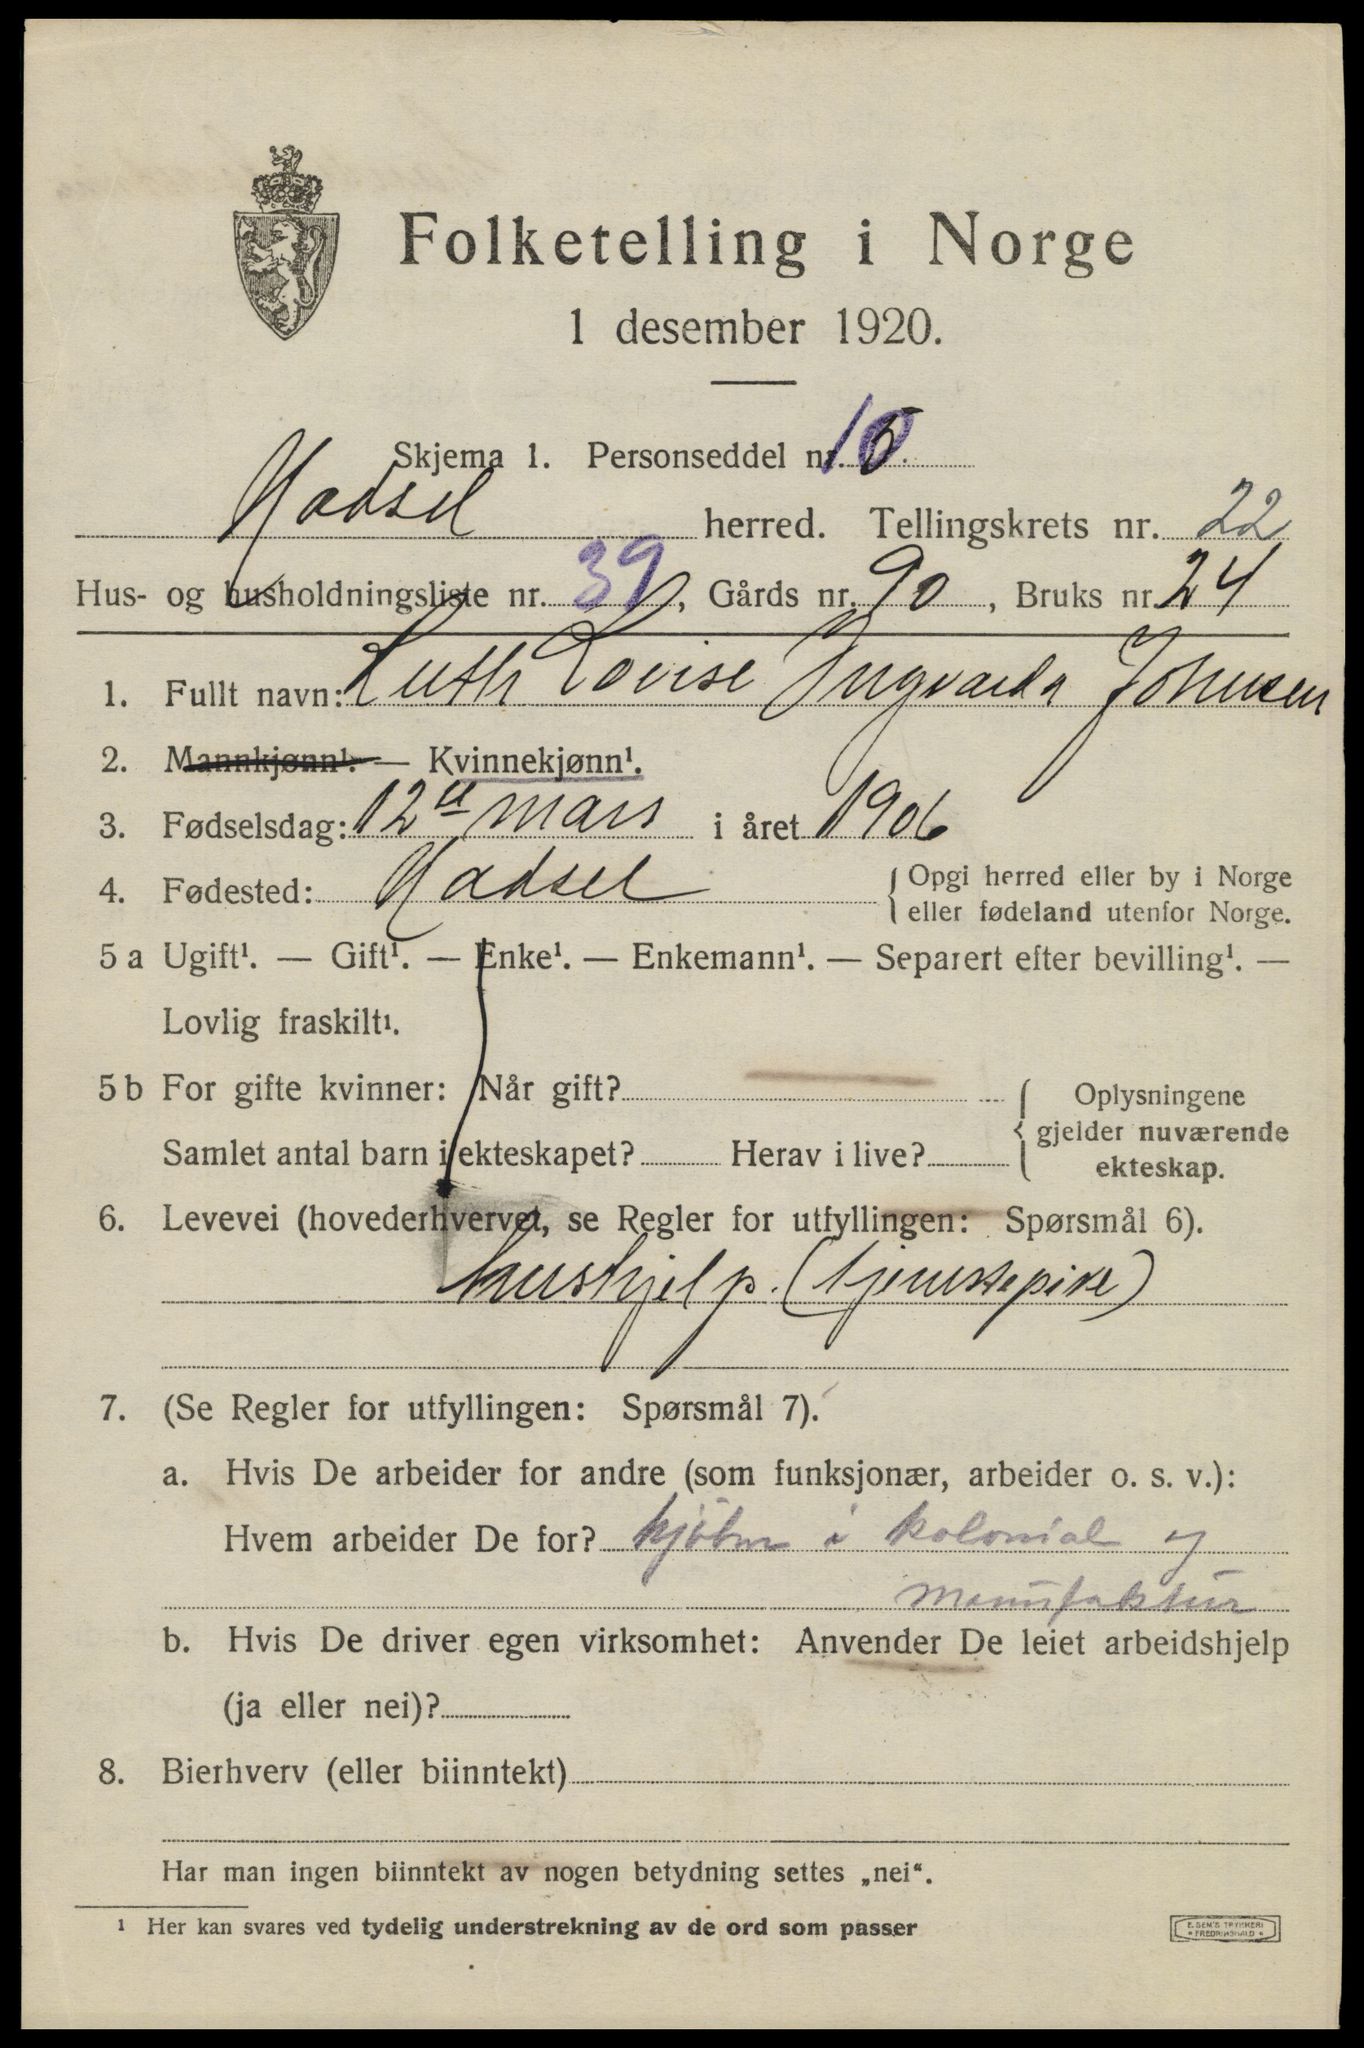 Folketelling i Norge
1 desember 1920.
Skjema 1. Personseddel nr. 10
Hadsel herred. Tellingskrets nr. 22
Hus- og husholdningsliste nr. 39, Gårds nr. 90, Bruks nr. 24
1. Fullt navn: Ruth Lovise Ingvarda Johnsen
2. Mannkjønn¹. — Kvinnekjønn¹.
3. Fødselsdag: 12te mars i året 1906
4. Fødested: Hadsel { Opgi herred eller by i Norge
eller fødeland utenfor Norge.
5 a Ugift¹. — Gift¹. — Enke¹. — Enkemann¹. — Separert efter bevilling¹. —
Lovlig fraskilt¹.
5 b For gifte kvinner: Når gift? { Oplysningene
gjelder nuværende
Samlet antal barn i ekteskapet? Herav i live?
ekteskap.
6. Levevei (hovederhvervet, se Regler for utfyllingen: Spørsmål 6).
hushjelp. (tjenestepike)
7. (Se Regler for utfyllingen: Spørsmål 7).
a. Hvis De arbeider for andre (som funksjonær, arbeider o. s. v.):
Hvem arbeider De for? kjøbm i kolonial og
manufaktur
b. Hvis De driver egen virksomhet: Anvender De leiet arbeidshjelp
(ja eller nei)?
8. Bierhverv (eller biinntekt)
Har man ingen biinntekt av nogen betydning settes „nei“.
¹ Her kan svares ved tydelig understrekning av de ord som passer
E. SEM'S TRYKKERI
FREDRIKSHALD